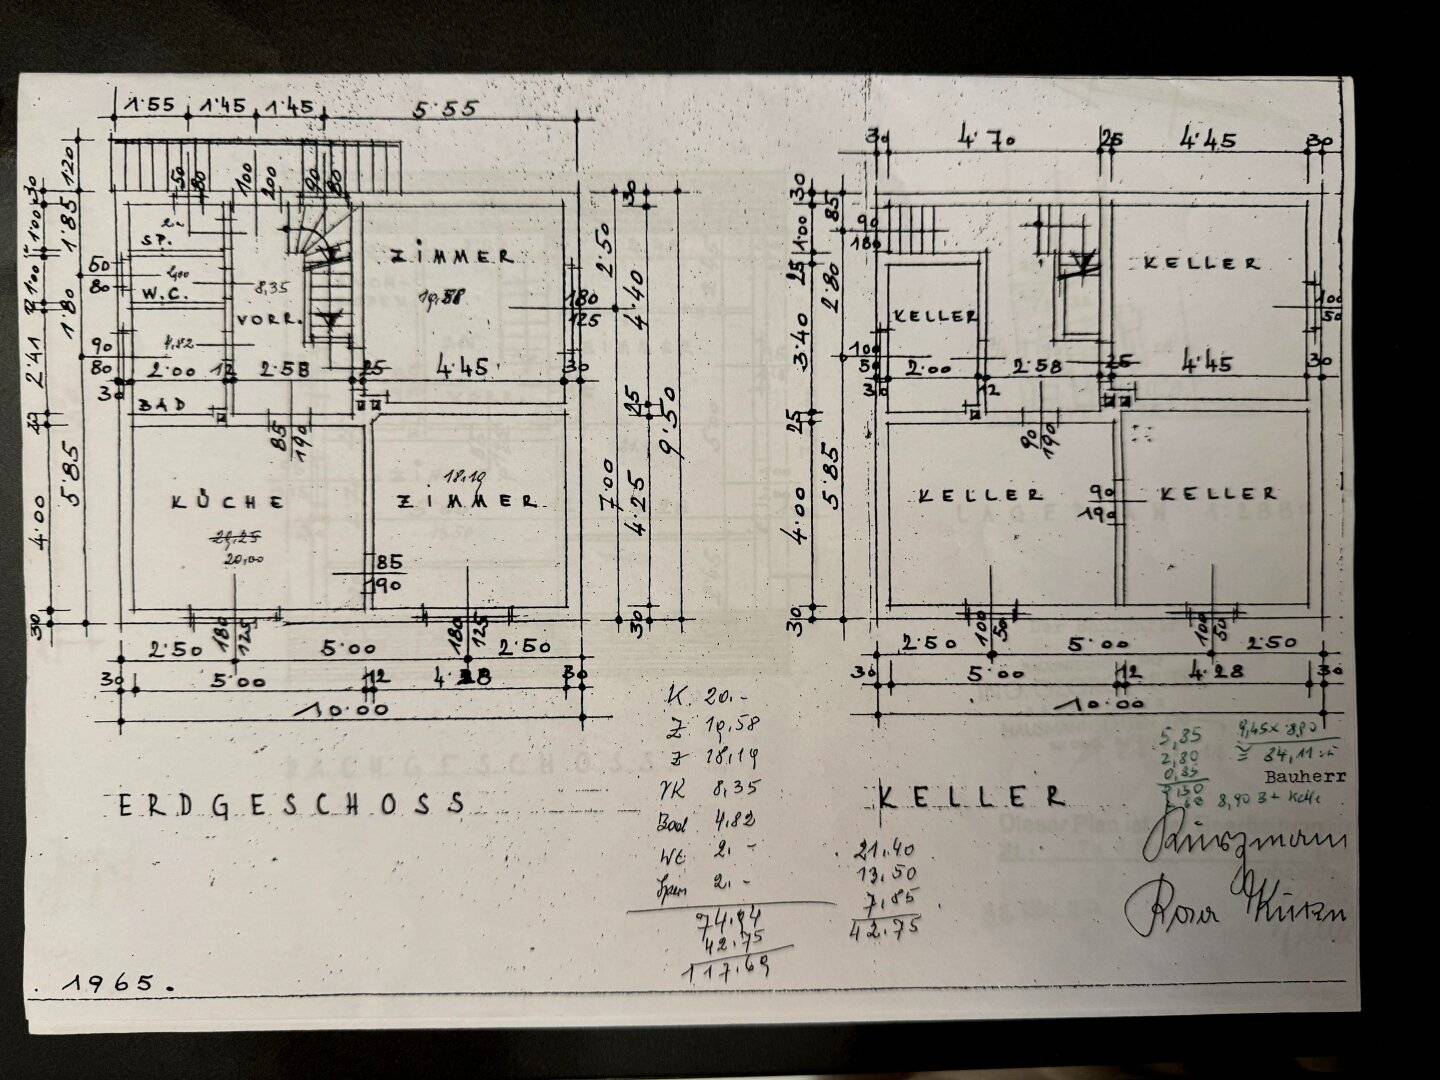 1·55 1·45 1·45 5·55
30 4·70 25 4·45 30
120
30
1·85
1·00
1·00
1·80
2·41
5·85
4·00
30
50
80
100
200
90
80
SP.
60
80
W.C.
2,00
8,35
VORR.
4,82
90
80
2·00 12 2·58 25 4·45 30
30
BAD
ZIMMER
19,58
180
125
85
190
KÜCHE
20,00
18,19
ZIMMER
85
190
180
125
180
125
2·50 5·00 2·50
30 5·00 12 4·28 30
10·00
30
2·50
4·40
25
9·50
7·00
4·25
30
30
85
1·00
25
2·80
3·40
25
5·85
4·00
30
90
180
KELLER
KELLER
100
50
100
50
2·00 12 2·58 25 4·45 30
30
90
190
KELLER
90
190
KELLER
100
50
100
50
2·50 5·00 2·50
30 5·00 12 4·28 30
10·00
ERDGESCHOSS
KELLER
K 20.-
Z 19,58
Z 18,19
VK 8,35
Bad 4,82
WC 2.-
Speis 2.-
74,94
42.75
117.69
21,40
13,50
7,85
42.75
5,85
2,80
0,85
Bauherr
Rosa
1965.